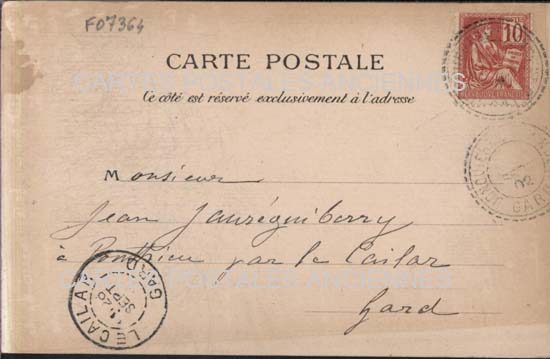 F07364
10
CARTE POSTALE
CARTES POSTALES ANCIENNES
Ce côté est réservé exclusivement à l'adresse
Monsieur
Jean Jauréguiberry
à par le Cailar
CARTES POSTALES ANCIENNES
Gard
LE CAILAR
GARD
SEPT
02
GARD